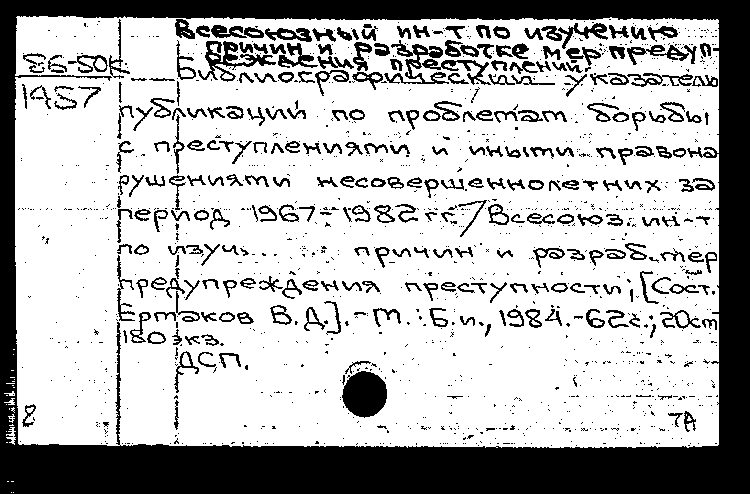 Всесоюзный ин-т по изучению
причин и разработке мер предуп-
реждения преступлений.
86-50К
Библиографический указатель
1457
публикаций по проблемам борьбы
с преступлениями и иными правона
рушениями несовершеннолетних за
период 1967-1982 гг. / Всесоюз. ин-т
по изуч. причин и разраб. мер
предупреждения преступности; [Сост.
Ертаков В.Д.]. - М.: Б.и., 1984. - 62 с.; 20 см
180 экз.
ДСП.
8
7А